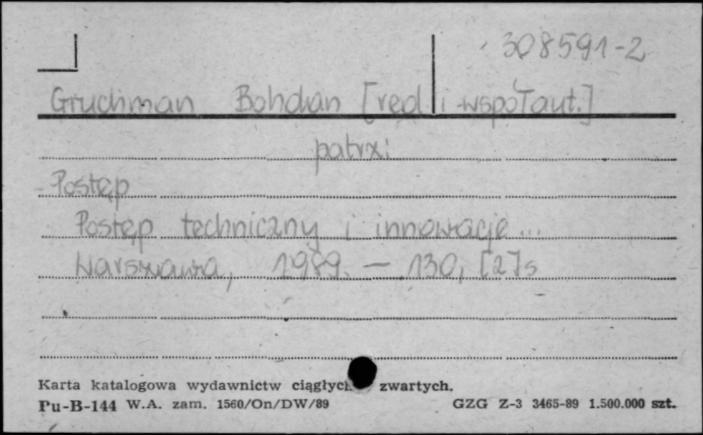 308591-2
Gruchman Bohdan [red i współaut.]
patrz:
Postęp
Postęp techniczny i innowacje...
Warszawa, 1989. — 130, [2] s
Karta katalogowa wydawnictw ciągłych zwartych.
Pu-B-144 W.A. zam. 1560/On/DW/89 GZG Z-3 3465-89 1.500.000 szt.